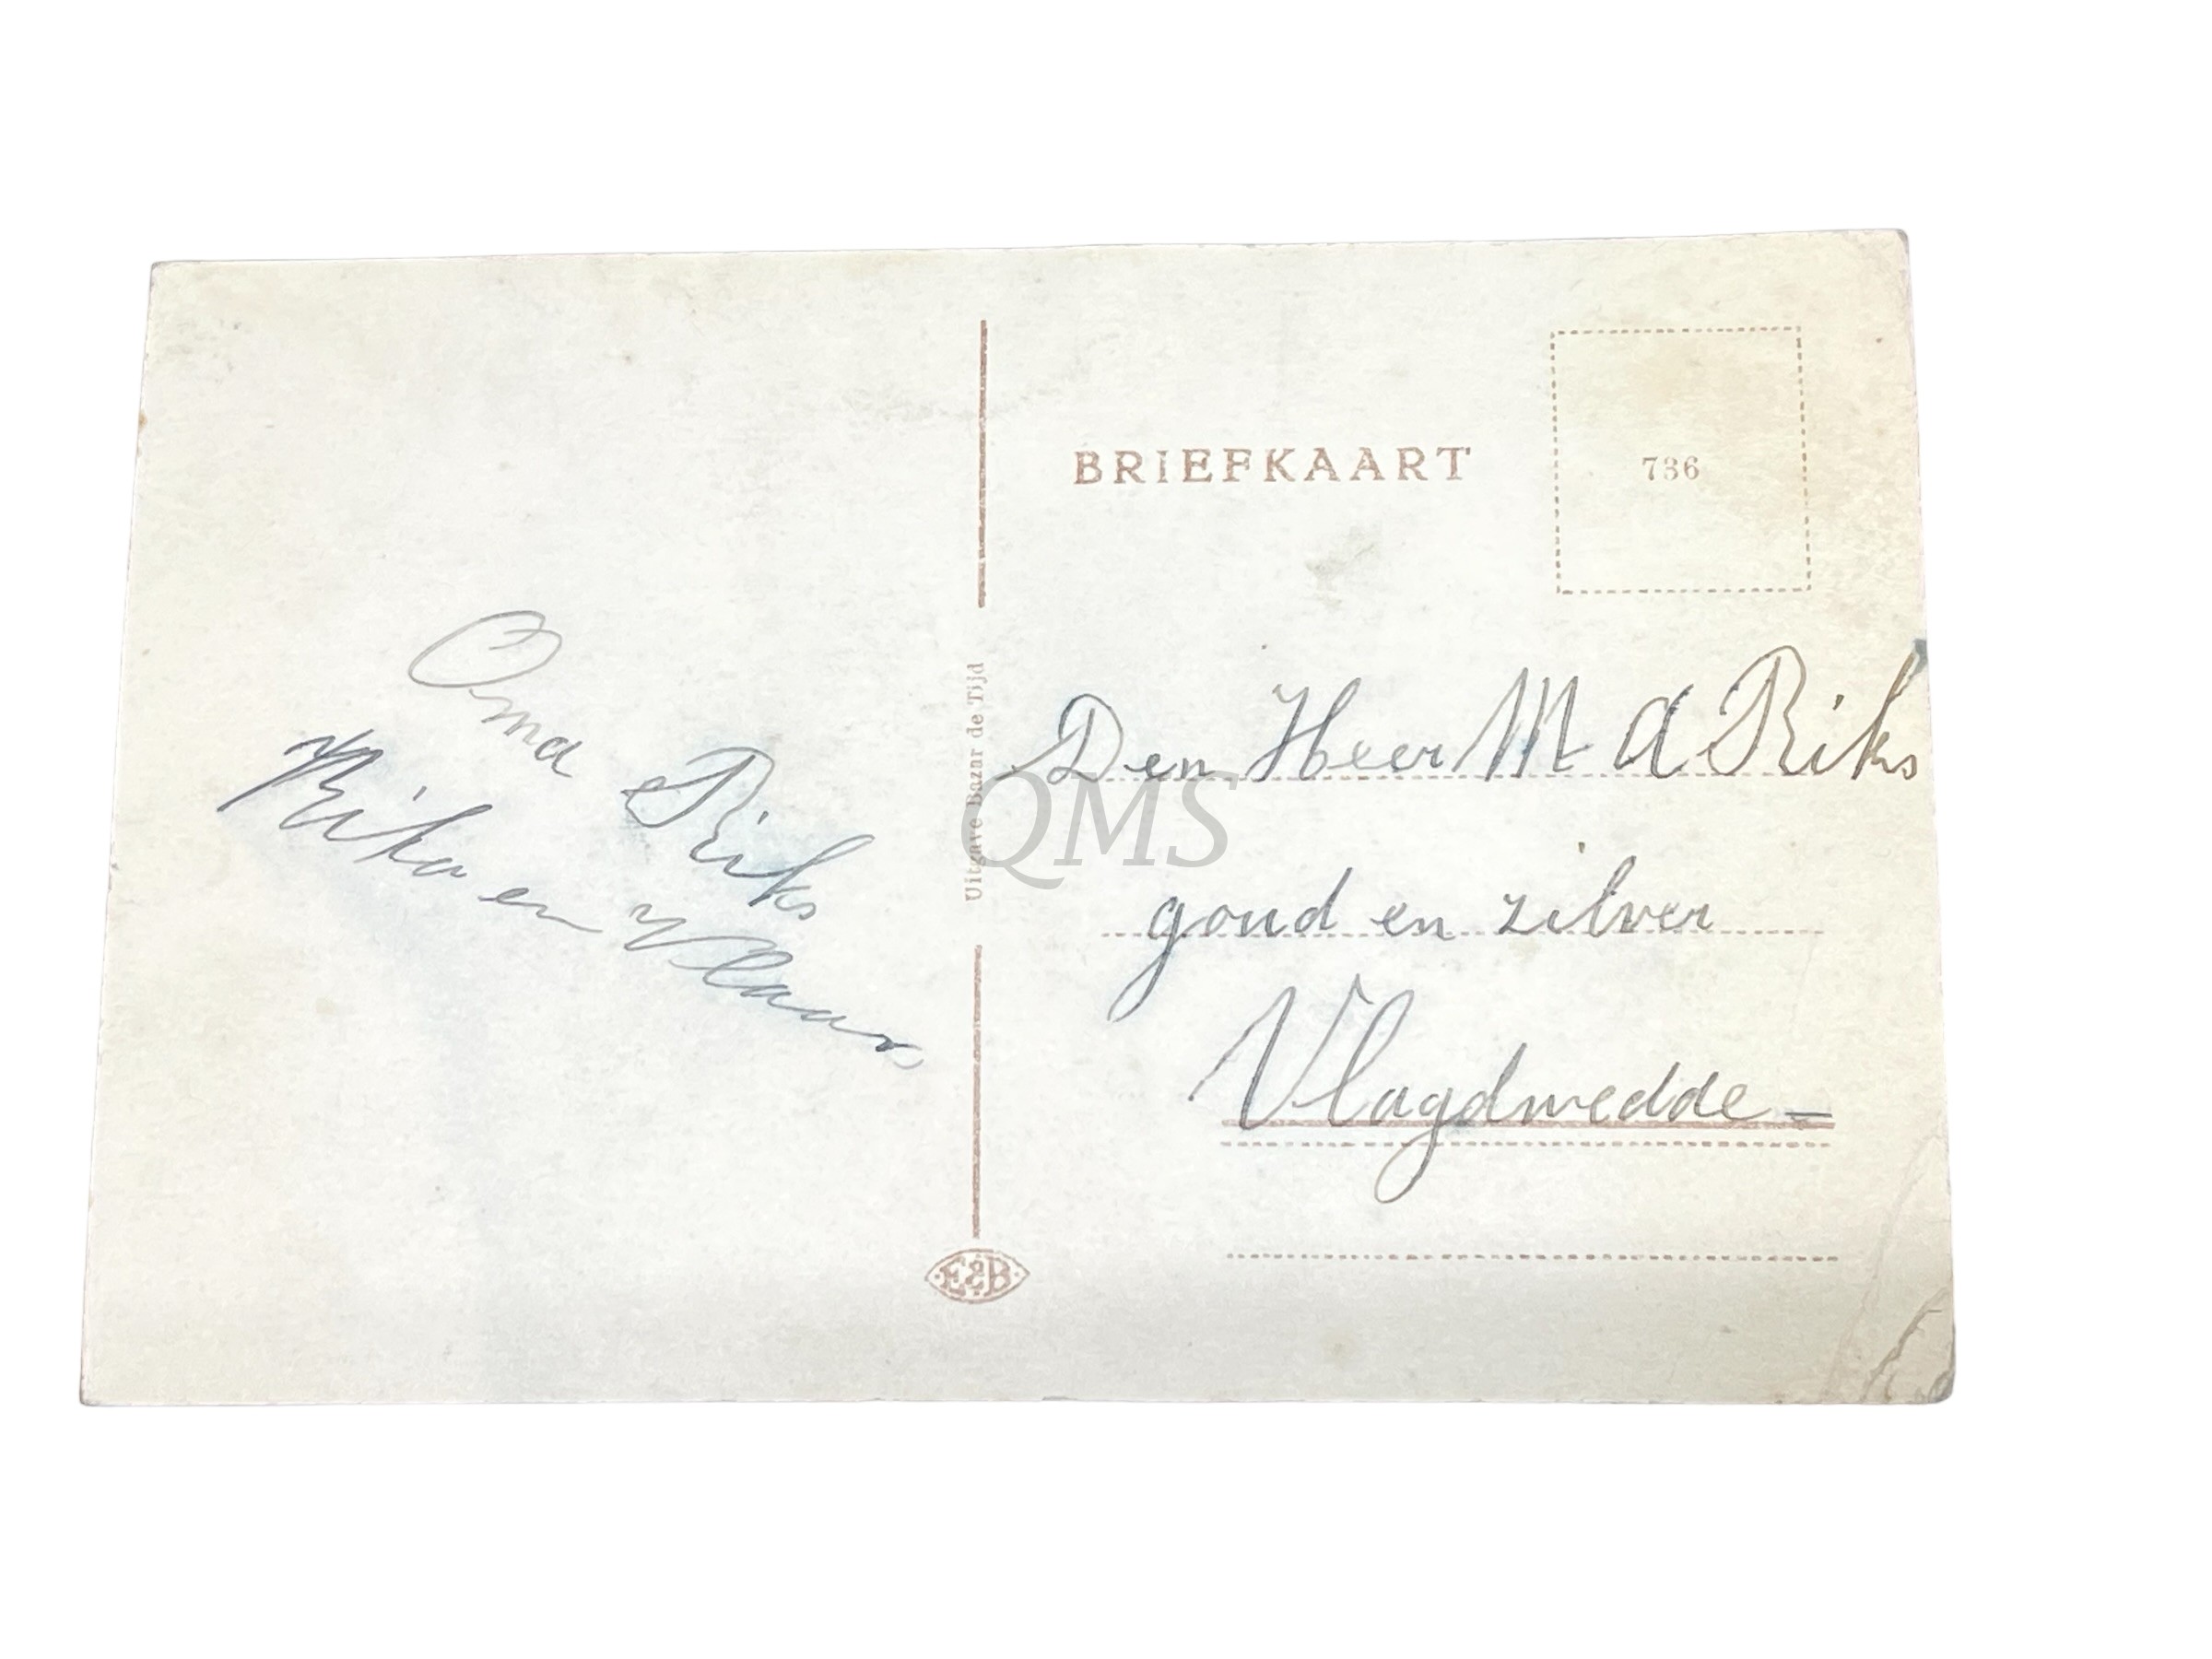 Oma Riks
Rika en Klaas
Uitgave Bazar de Tijd
E&B
BRIEFKAART
736
Den Heer M A Riks
goud en zilver
Vlagdwedde
QMS